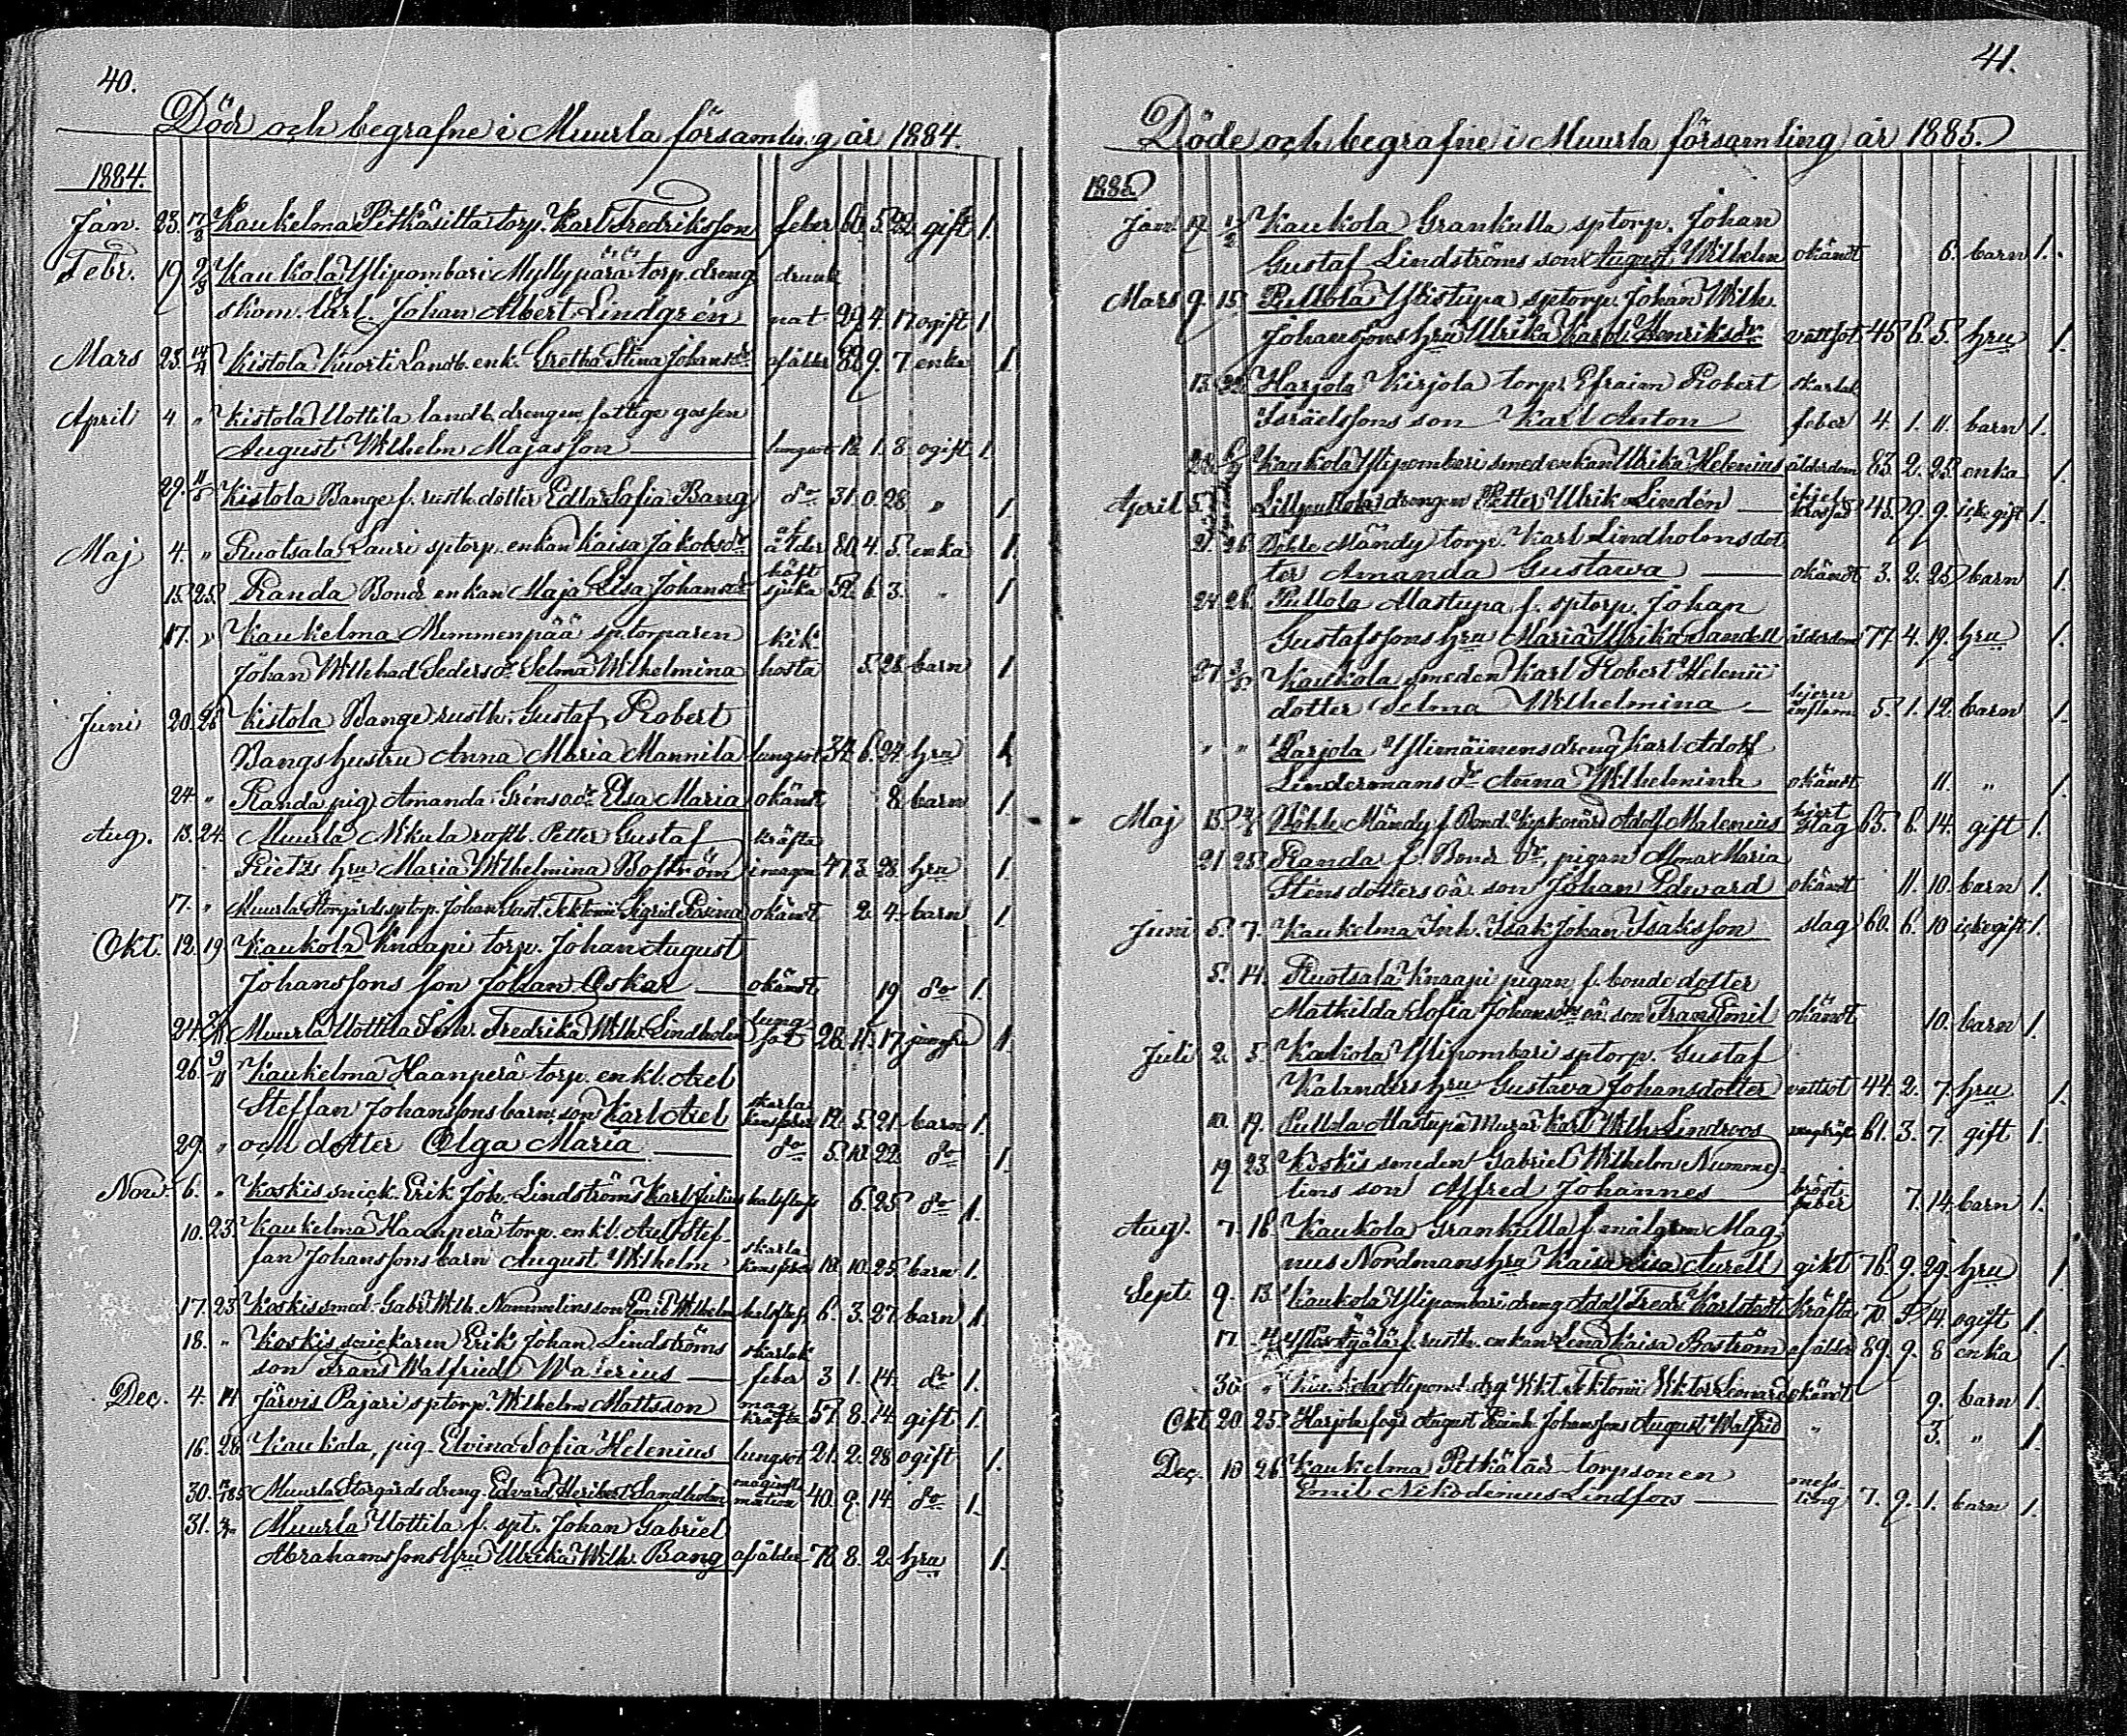 40.
Döde och begrafne i Muurla församling år 1884.
1884.
Jan. 23. 17/2 Kaukelma Pitkäsilta torp. Karl Fredriksson feber 60. 5. 22. gift 1.
Febr. 19 2/3 Kaukola Ylipombari Myllyperä torp. dreng drunk
skom. lärl. Johan Albert Lindgrén nat 29. 4. 17. ogift 1.
Mars 23. 14/4 Kistola Kuorti Landb. enk. Gretha Stina Johansdr af ålder 82. 9. 7. enka 1.
April 4 " Kistola Uottila landb. drengen fattige gossen
August Wilhelm Majasson lungsot 12. 1. 8. ogift 1.
29. 11/5 Kistola Bange f. rusth. dotter Edla Sofia Bang do 31. 0. 28. " 1.
Maj 4. " Ruotsala Lauri sptorp. enkan Kaisa Jakobsdr af ålder 80. 4. 5. enka 1.
15. 25. Randa Bonde enkan Maja Lisa Johansdr sjuka 52. 6. 3. " 1
17. " Kaukelma Nummenpää sptorparen kik
Johan Willehad Seders dr Selma Wilhelmina hosta 5. 26. barn 1.
Juni 20. 26 Kistola Bange rusth. Gustaf Robert
Bangs hustru Anna Maria Mannila lungsot 34. 6. 24. hru 1
24. " Randa pig. Amanda Gréns oä. dr Elsa Maria okändt 8 barn 1.
Aug. 13. 24. Muurla Nikula rusth. Petter Gustaf kräfta
Rietzs hru Maria Wilhelmina Boström i magen 47. 3. 28. hru 1.
17. " Muurla Storgårds sptorp. Johan Gust. Tektonii Sigrid Rosina okändt 2. 4. barn 1.
Okt. 12. 19 Kaukola Knaapi torp. Johan August
Johanssons son Johan Oskar okändt 19 do 1.
24. 2/11 Muurla Uottila Inh. Fredrika Wilh. Lindholm lung sot 28. 11. 17 jungfru 1.
26. 9/11 Kaukelma Haanperä torp. enkl. Axel
Steffan Johanssons barn, son Karl Axel skarla kansfeber 12. 5. 21. barn 1.
29. " och dotter Olga Maria do 5. 10. 22. do 1.
Nov. 6. " Koskis snick. Erik Joh. Lindströms Karl Julius halsfluss 6. 25. do 1.
10. 23. Kaukelma Haanperä torp. enkl. Axel Stef-
fan Johanssons barn August Wilhelm skarla kansfeber 10. 10. 25. barn 1.
17. 23 Koskis smed. Gabr. Wilh. Nummelins son Emil Wilhelm halsfluss 6. 3. 27. barn 1.
18. " Koskis snickaren Erik Johan Lindströms skarlak
son Frans Walfried Walerius feber 3 1. 14. do 1.
Dec. 4. 14 Järvis Pajari sptorp. Wilhelm Mattsson mag kräfta 57. 8. 14. gift 1.
16. 28. Kaukola, pig. Elvina Sofia Helenius lungsot 21. 2. 28 ogift 1.
30. Muurla Storgårds dreng. Edvard Heribert Sandholm maginfla mation 40. 9. 14. do 1.
31. Muurla Uottila f. spt. Johan Gabriel
Abrahamssons hru Ulrika Wilh. Bang af ålder 78. 8. 2. hru 1.
41.
Döde och begrafne i Muurla församling år 1885.
1885
Jan. 17 1/2 Kaukola Grankulla sptorp. Johan
Gustaf Lindströms son August Wilhelm okändt 6. barn 1.
Mars 9. 15. Pullola Ylistupa sptorp. Johan Wilh.
Johanssons hru Ulrika Karol. Henriksdr vattsot 45 6. 5. hru 1.
13. 22. Harjola Kirjola torp. Efraim Robert skarlak
Israelssons son Karl Anton feber 4. 1. 11. barn 1.
28. 6/4 Kaukola Ylipombari smed enkan Ulrika Helenius ålderdom 83. 2. 25. enka 1.
April 5. Lillpullola drengen Petter Ulrik Lindén ihjel krossad 45. 9. 9. icke gift 1.
21. 26. Wähle Mändy torp. Karl Lindholms dot
ter Amanda Gustawa okändt 3. 2. 25 barn 1.
24. 26. Pullola Alastupa f. sptorp. Johan
Gustafssons hru Maria Ulrika Sandell ålderdom 77. 4. 19. hru 1.
27. 3/5 Kaukola smeden Karl Robert Helenii
dotter Selma Wilhelmina hjern inflam. 5. 1. 12. barn 1.
" " Harjola Ylimäinens dreng Karl Adolf
Lindermans dr Anna Wilhelmina okändt 11. " 1.
Maj 15. Wähle Mändy f. Bond. Kyrkovärd Adolf Malenius hjert slag 65. 6. 14. gift 1.
21 25. Randa f. Bond dr, pigan Alma Maria
Sténsdotters oä. son Johan Edward okändt 11. 10. barn 1.
Juni 5. 7. Kaukelma Inh. Isak Johan Isaksson slag 60. 6. 10 icke gift 1.
5. 14. Ruotsala Knaapi pigan f. bonde dotter
Mathilda Sofia Johansdrs oä. son Frans Emil okändt 10. barn 1.
Juli 2. 5. Kaukola Ylipombari sptorp. Gustaf
Kalanders hru Gustava Johansdotter vattsot 44. 2. 7. hru 1.
10. 19. Pullola Alastupa Murar Karl Wilh. Lindroos 61. 3. 7. gift 1.
19 23. Koskis smeden Gabriel Wilhelm Numme-
lins son Alfred Johannes bröst feber 7. 14. barn 1.
Aug. 7. 16. Kaukola Grankulla f. målaren Mag-
nus Nordmans hru Kaisa Lisa Aurell gikt 76. 9. 29. hru 1
Sept. 9. 13. Kaukola Ylipombari dreng Adolf Fredr. Karlstedt kräfta 70. 5. 14. ogift 1.
17. Ylöskylä f. rusth. enkan Lena Kaisa Boström af ålder 89. 9. 8 enka 1.
30. " Kaukola Ylipomb. drg. Wikt. Tektonii Wiktor Leonard okändt 9. barn 1.
Okt. 20. 25. Harjola fogd August Reinh. Johanssons August Walfrid " 3. " 1
Dec. 10 26. Kaukelma Pitkälän torpsonen
Emil Nikodemus Lindfors mess ling 7. 9. 1. barn 1.